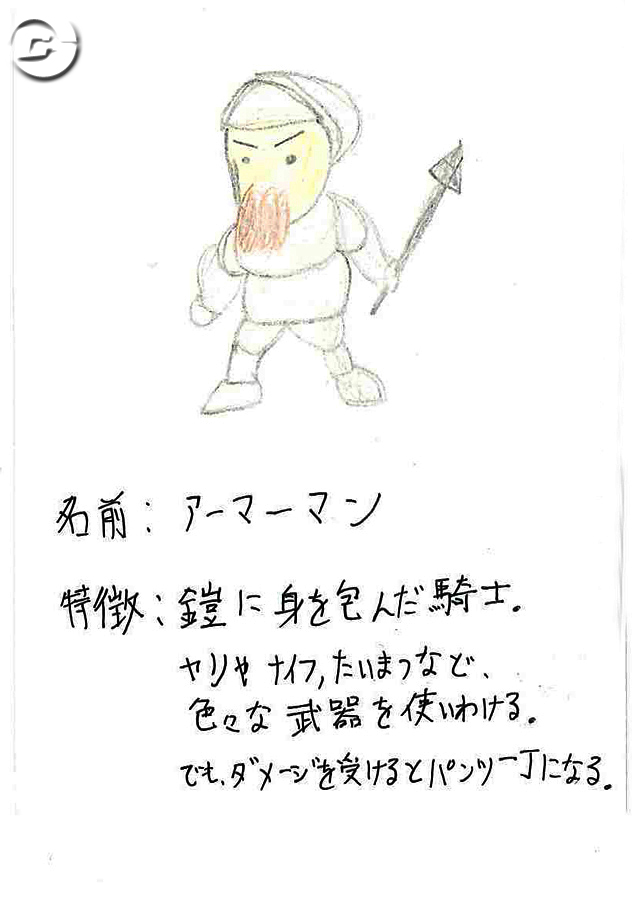 名前：アーマーマン
特徴：鎧に身を包んだ騎士。
ヤリやナイフ,たいまつなど、
色々な武器を使いわける。
でも、ダメージを受けるとパンツ一丁になる。